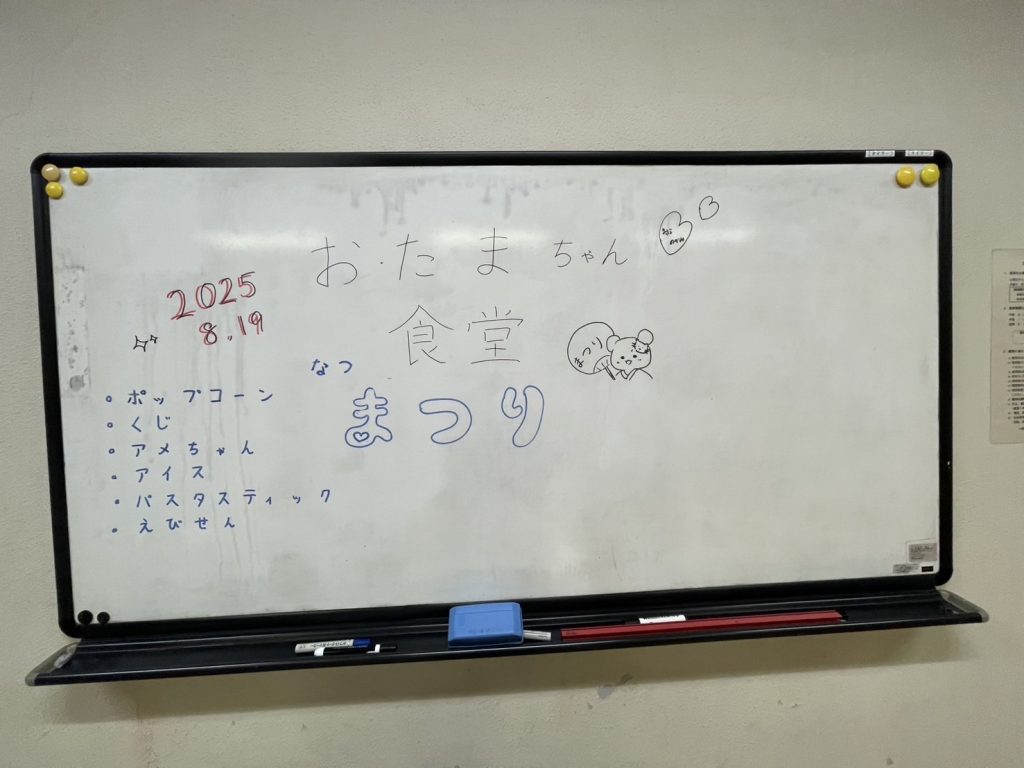 お・たまちゃん
食堂
2025
8.19
なつ
まつり
まつり
・ポップコーン
・くじ
・アメちゃん
・アイス
・パスタスティック
・えびせん